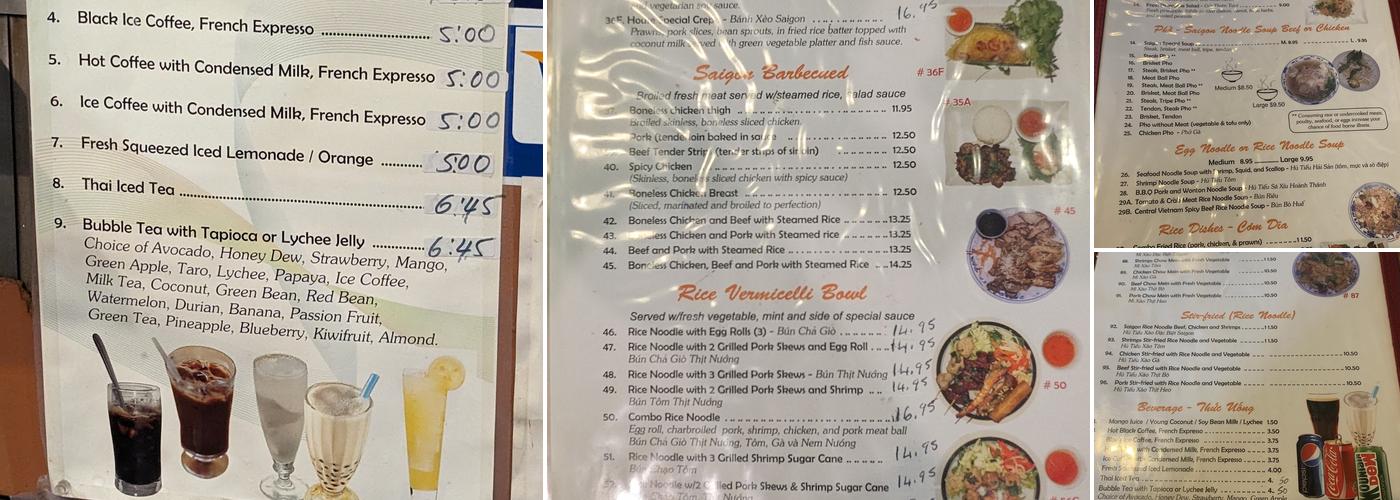 4. Black Ice Coffee, French Expresso 5:00
5. Hot Coffee with Condensed Milk, French Expresso 5:00
6. Ice Coffee with Condensed Milk, French Expresso 5:00
7. Fresh Squeezed Iced Lemonade / Orange 5:00
8. Thai Iced Tea 6:45
9. Bubble Tea with Tapioca or Lychee Jelly 6:45
Choice of Avocado, Honey Dew, Strawberry, Mango,
Green Apple, Taro, Lychee, Papaya, Ice Coffee,
Milk Tea, Coconut, Green Bean, Red Bean,
Watermelon, Durian, Banana, Passion Fruit,
Green Tea, Pineapple, Blueberry, Kiwifruit, Almond.
vegetarian soy sauce.
36F. House Special Crep - Bánh Xèo Saigon 16.95
Prawns, pork slices, bean sprouts, in fried rice batter topped with
coconut milk served with green vegetable platter and fish sauce.
# 36F
Saigon Barbecued
Broiled fresh meat served w/steamed rice, salad sauce
# 35A
Boneless chicken thigh 11.95
Broiled skinless, boneless sliced chicken.
Pork (tenderloin baked in sauce 12.50
Beef Tender Strip (tender strips of sirloin) 12.50
40. Spicy Chicken 12.50
(Skinless, boneless sliced chicken with spicy sauce)
41. Boneless Chicken Breast 12.50
(Sliced, marinated and broiled to perfection)
42. Boneless Chicken and Beef with Steamed Rice 13.25
43. Boneless Chicken and Pork with Steamed rice 13.25
44. Beef and Pork with Steamed Rice 13.25
45. Boneless Chicken, Beef and Pork with Steamed Rice 14.25
# 45
Rice Vermicelli Bowl
Served w/fresh vegetable, mint and side of special sauce
46. Rice Noodle with Egg Rolls (3) - Bún Chả Giò 14.95
47. Rice Noodle with 2 Grilled Pork Skews and Egg Roll 14.95
Bún Chả Giò Thịt Nướng
48. Rice Noodle with 3 Grilled Pork Skews - Bún Thịt Nướng 14.95
49. Rice Noodle with 2 Grilled Pork Skews and Shrimp 14.95
Bún Tôm Thịt Nướng
50. Combo Rice Noodle 16.95
Egg roll, charbroiled pork, shrimp, chicken, and pork meat ball
Bún Chả Giò Thịt Nướng, Tôm, Gà và Nem Nướng
# 50
51. Rice Noodle with 3 Grilled Shrimp Sugar Cane 14.95
Bún Chạo Tôm
Noodle w/2 Grilled Pork Skews & Shrimp Sugar Cane 14.95
Chạo Tôm Thịt Nướng
9.00
Phở - Saigon Noodle Soup Beef or Chicken
14. Saigon Special Soup M. 8.95 L. 9.95
Steak, brisket, meat ball, tripe, tendon
15. Steak Pho **
16. Brisket Pho
17. Steak, Brisket Pho **
18. Meat Ball Pho
19. Steak, Meat Ball Pho **
20. Brisket, Meat Ball Pho
21. Steak, Tripe Pho **
22. Tendon, Steak Pho **
23. Brisket, Tendon
24. Pho without Meat (vegetable & tofu only)
25. Chicken Pho - Phở Gà
Medium $8.50
Large $9.50
** Consuming raw or undercooked meats,
poultry, seafood, or eggs increase your
chance of food borne illness.
Egg Noodle or Rice Noodle Soup
Medium 8.95 Large 9.95
26. Seafood Noodle Soup with Shrimp, Squid, and Scallop - Hủ Tiếu Hải Sản (tôm, mực và sò điệp)
27. Shrimp Noodle Soup - Hủ Tiếu Tôm
28. B.B.Q Pork and Wonton Noodle Soup - Hủ Tiếu Xá Xíu Hoành Thánh
29A. Tomato & Crab Meat Rice Noodle Soup - Bún Riêu
29B. Central Vietnam Spicy Beef Rice Noodle Soup - Bún Bò Huế
Rice Dishes - Cơm Dĩa
Combo Fried Rice (pork, chicken, & prawns) 11.50
Shrimp Chow Mein with Fresh Vegetable 11.50
Mì Xào Tôm
89. Chicken Chow Mein with Fresh Vegetable 10.50
Mì Xào Gà
90. Beef Chow Mein with Fresh Vegetable 10.50
Mì Xào Thịt Bò
91. Pork Chow Mein with Fresh Vegetable 10.50
# 87
Stir-fried (Rice Noodle)
92. Saigon Rice Noodle Beef, Chicken and Shrimps 11.50
Hủ Tiếu Xào Đặc Biệt Saigon
93. Shrimps Stir-fried with Rice Noodle and Vegetable 11.50
Hủ Tiếu Xào Tôm
94. Chicken Stir-fried with Rice Noodle and Vegetable 10.50
Hủ Tiếu Xào Gà
95. Beef Stir-fried with Rice Noodle and Vegetable 10.50
Hủ Tiếu Xào Thịt Bò
96. Pork Stir-fried with Rice Noodle and Vegetable 10.50
Hủ Tiếu Xào Thịt Heo
Beverage - Thức Uống
Mango Juice / Young Coconut / Soy Bean Milk / Lychee 1.50
Hot Black Coffee, French Expresso 3.50
Black Ice Coffee, French Expresso 3.75
with Condensed Milk, French Expresso 3.75
Ice Coffee with Condensed Milk, French Expresso 3.75
Fresh Squeezed Iced Lemonade 4.00
Thai Iced Tea 4.50
Bubble Tea with Tapioca or Lychee Jelly 4.50
Choice of Avocado, Honey Dew, Strawberry, Mango, Green Apple
pepsi
Coca-Cola